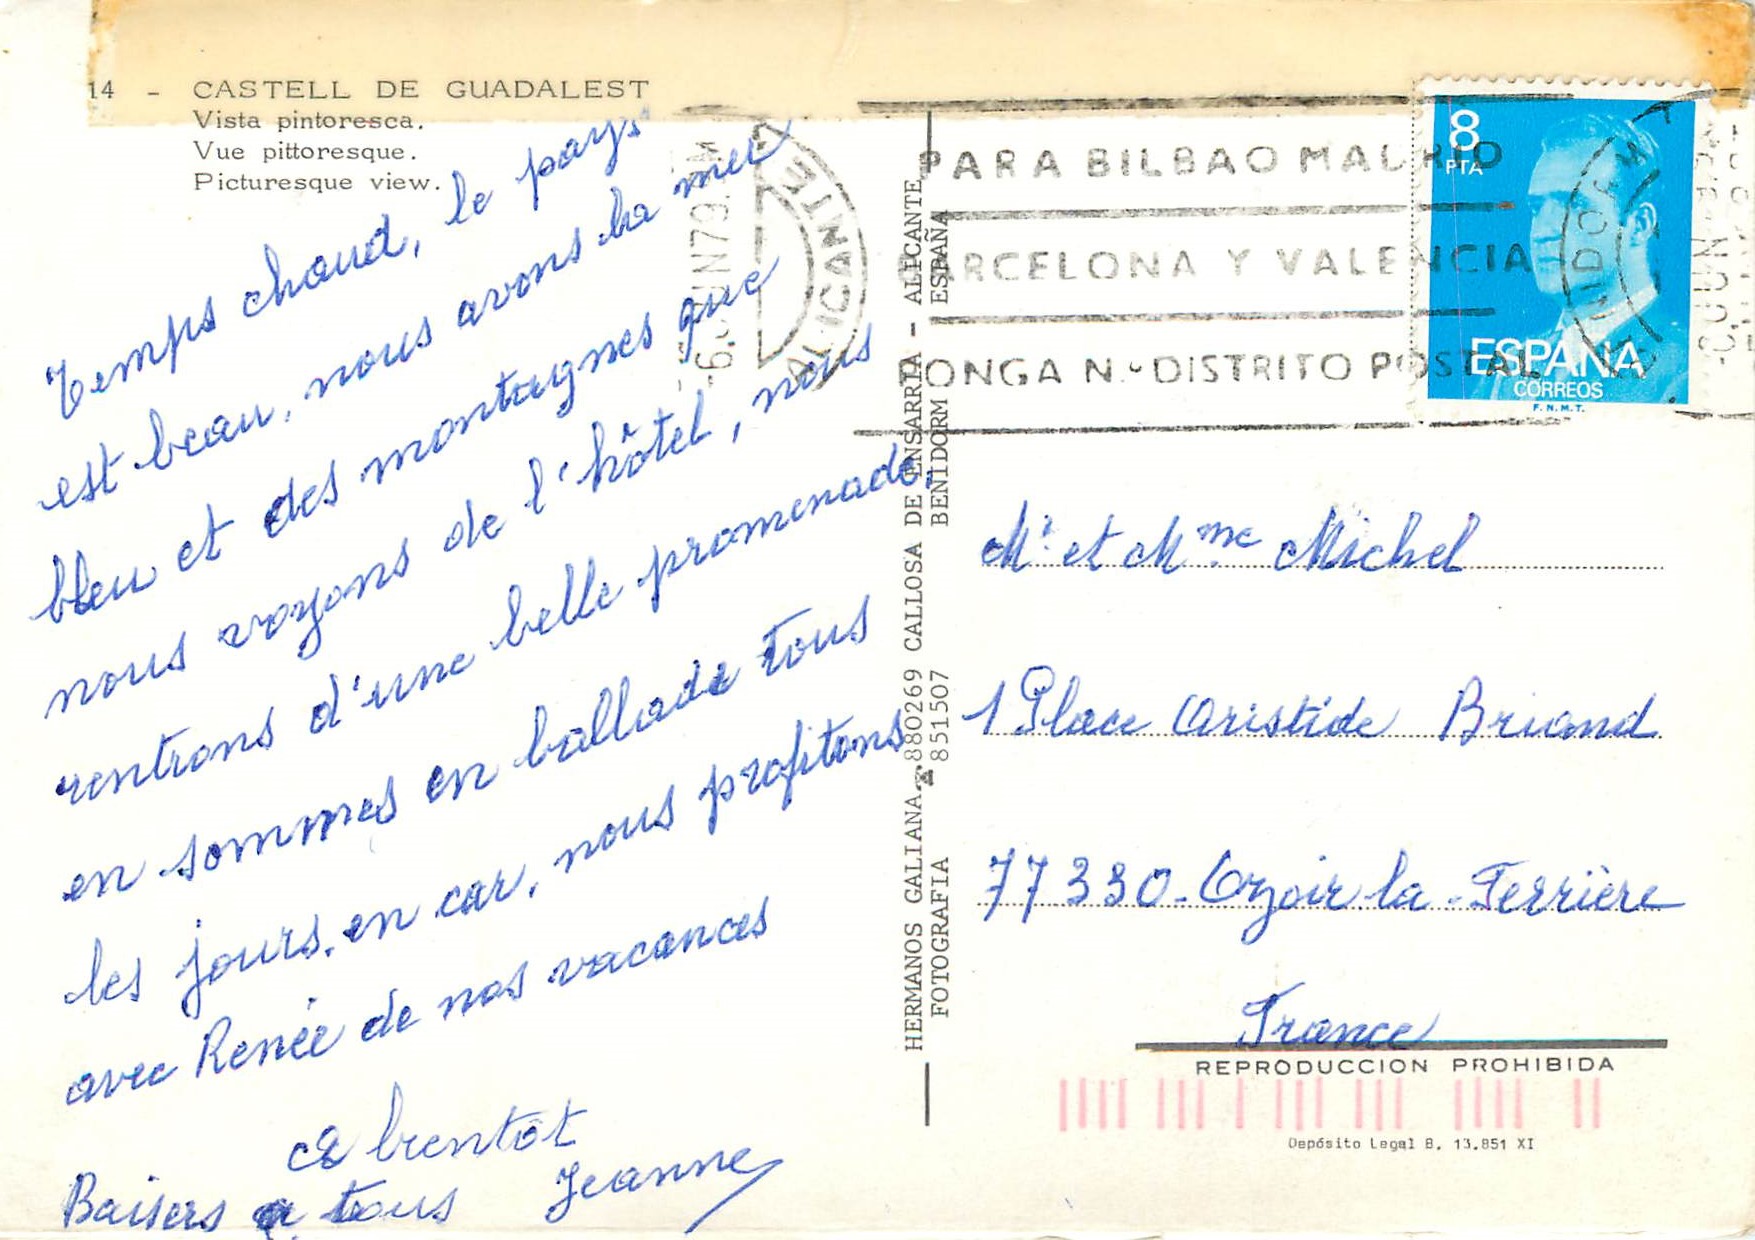 14 - CASTELL DE GUADALEST
Vista pintoresca.
Vue pittoresque.
Picturesque view.
Temps chaud, le pays
est beau, nous avons la mer
bleu et des montagnes que
nous voyons de l'hôtel, nous
rentrons d'une belle promenade,
en sommes en ballade tous
les jours, en car, nous profitons
avec Renée de nos vacances
A bientôt
Baisers a tous Jeanne
HERMANOS GALIANA 880269 CALLOSA DE ENSARRIA - ALICANTE
FOTOGRAFIA 851507 BENIDORM ESPAÑA
ALICANTE
PARA BILBAO MADRID
BARCELONA Y VALENCIA
PONGA N.º DISTRITO POSTAL
8
PTA
ESPAÑA
CORREOS
F.N.M.T.
BENIDORM
Mr et Mme Michel
1 Place Aristide Briand
77330 - Ozoir-la-Ferrière
France
REPRODUCCION PROHIBIDA
Depósito Legal B. 13.851 XI